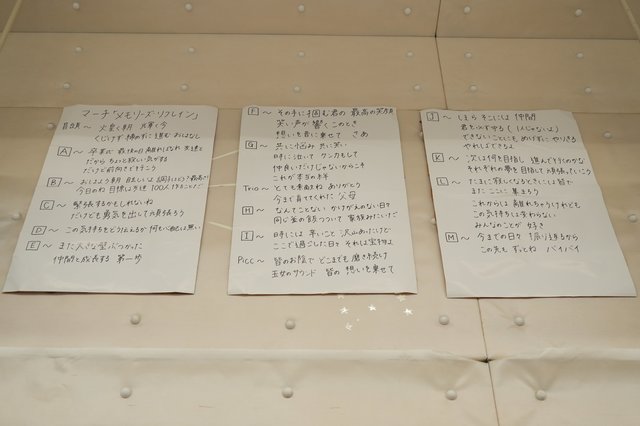 マーチ「メモリーズ・リフレイン」
冒頭～
くじけず 諦めずに 進む おはなし
A～ 卒業式 最後の日 離ればなれ 友達と
だから ちょっと寂しい気がする
だけど前向きで行こう
B～ おはよう朝
今日のね 目標は
C～ 緊張するかもしれないね
だけども勇気を出して頑張ろう
D～ この気持ちをどう伝えるか 何も心配は無い
E～ また大きな壁ぶつかった
仲間と成長する 第一歩
F～ その手に掴む君の 最高の笑顔
笑い声が 響く このとき
想いを音に乗せて さあ
G～ 共に悩み 共に笑い
時に泣いて ケンカもして
仲良いだけじゃないからこそ
これが本当の絆
Trio～ とても素敵ね ありがとう
今まで育ててくれた 父母
H～ なんてことない かけがえのない日々
同じ釜の飯つついて 家族みたいだ
I～ 時には 辛いこと 沢山あったけど
ここで過ごした日々 それは宝物よ
Picc～ 皆のお陰で どこまでも 磨き続け
玉女のサウンド 皆の 想いを乗せて
J～ そこには 仲間
できないことにも めげずに やりきる
やればできるよ
K～ 次は何を目指し 進んで行くのかな
それぞれの夢を目指して頑張っていこう
L～ たまに寂しくなるときには 皆で
また ここに 集まろう
これからは 離れちゃうけれども
この気持ちは失わない
みんなのことが 好き
M～ 今までの日々 振り返るから
この先も ずっとね バイバイ